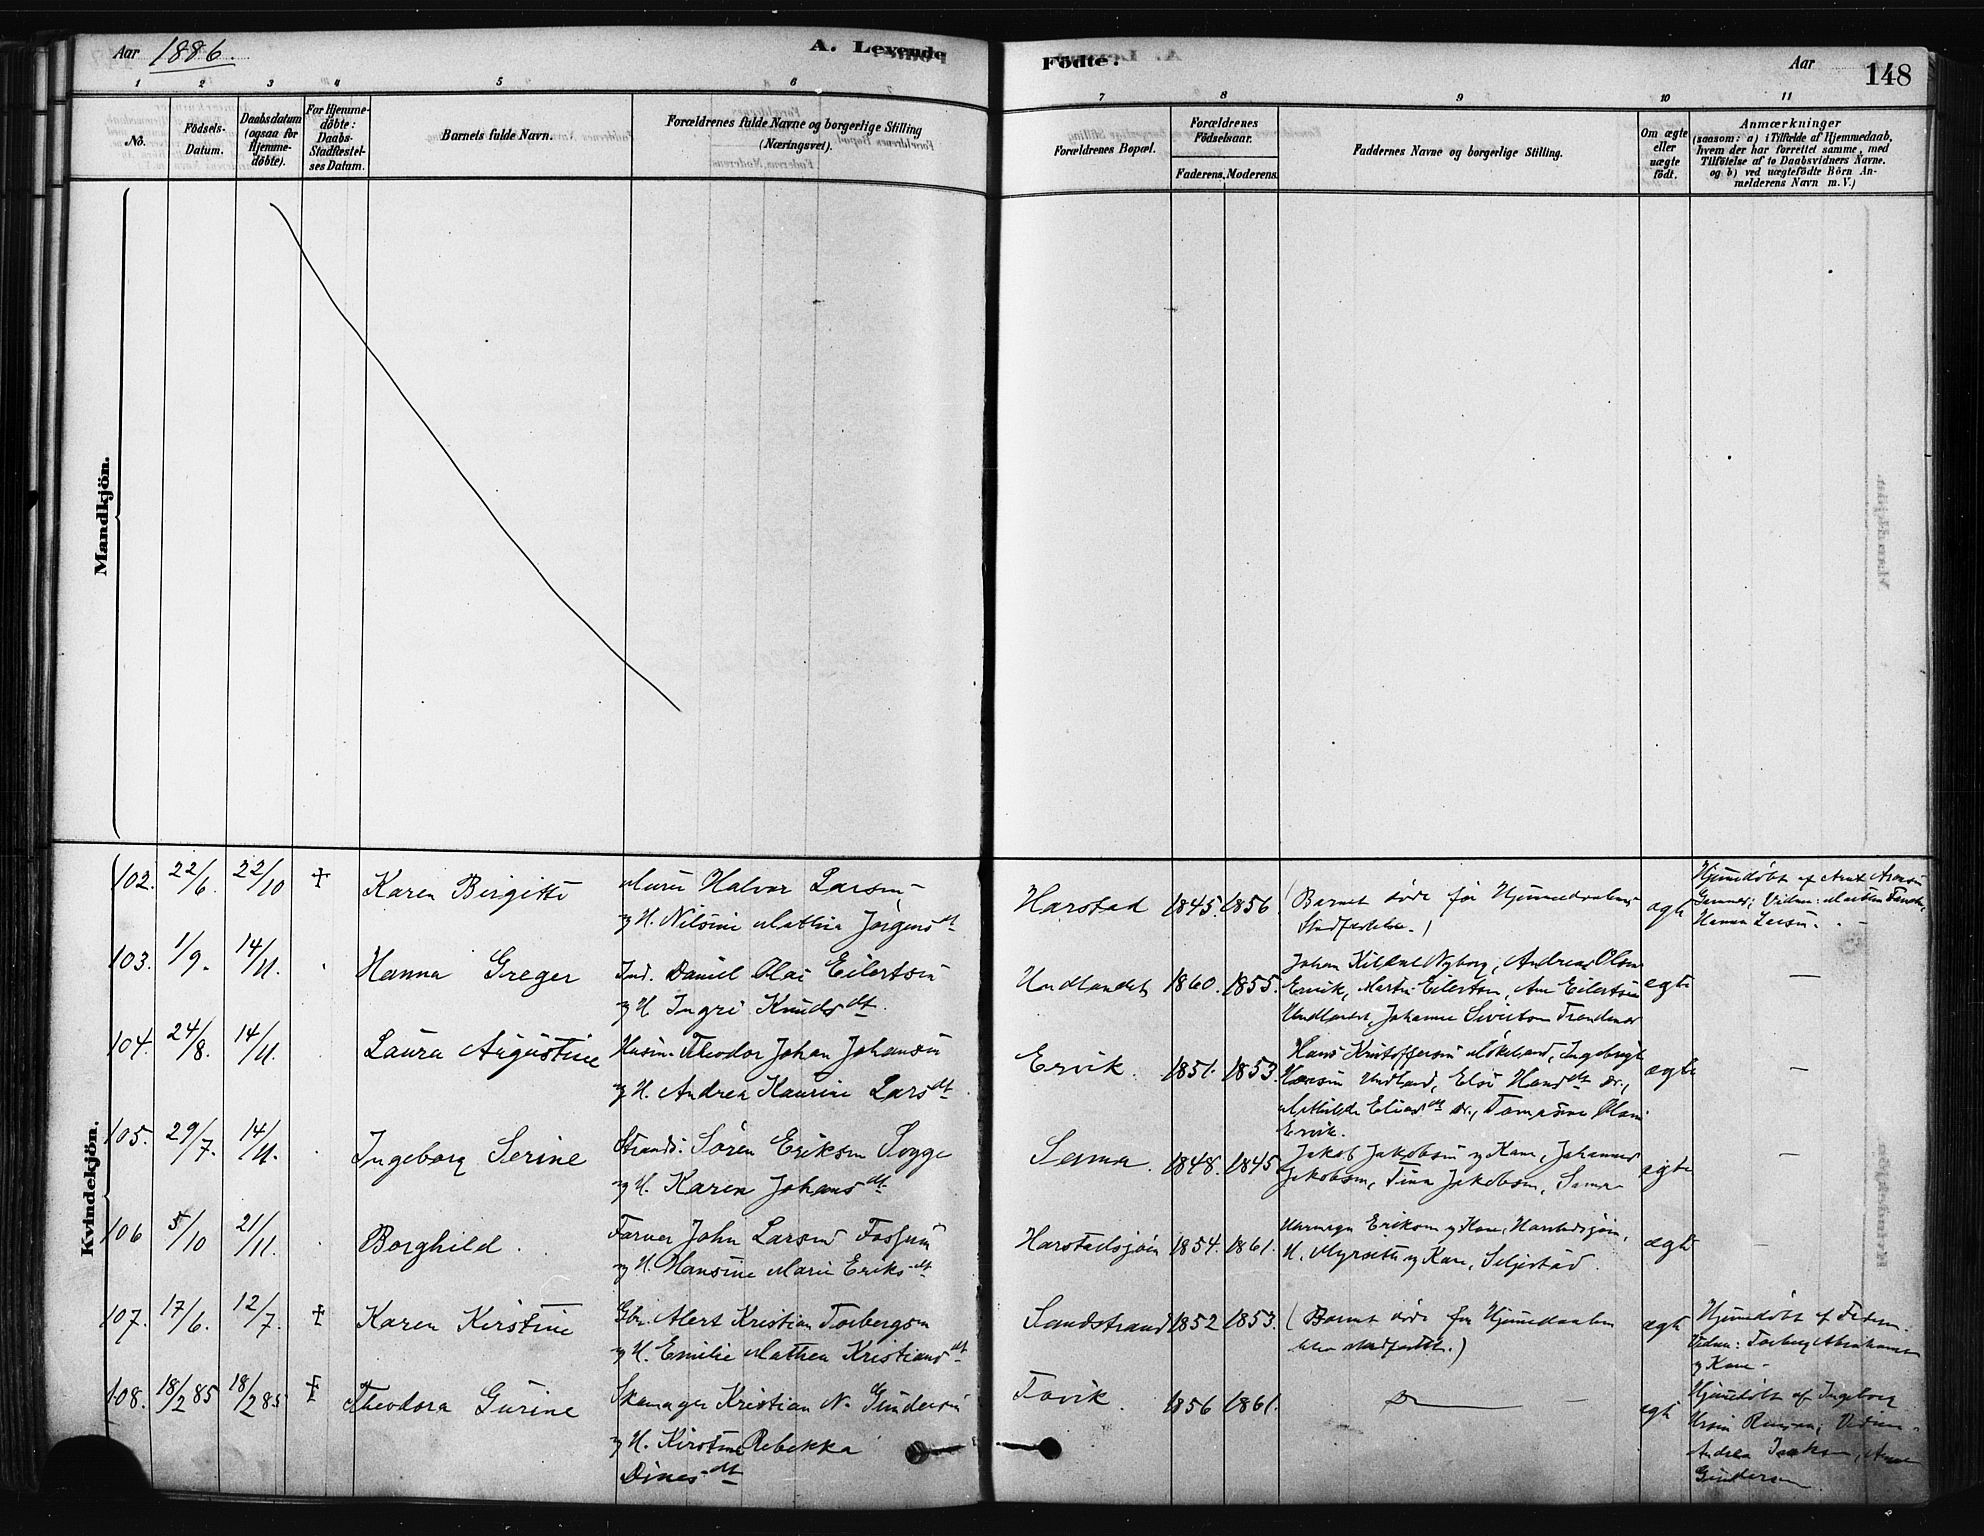 Aar 1886.
A. Levende
Födte.
Aar
148
1 2 3 4 5 6 7 8 9 10 11
No.
Födsels-
Datum.
Daabsdatum
(ogsaa for
Hjemme-
döbte).
For Hjemme-
döbte:
Daabs-
Stadfæstel-
ses Datum.
Barnets fulde Navn.
Forældrenes fulde Navne og borgerlige Stilling
(Næringsvei).
Forældrenes Bopæl.
Forældrenes
Födselsaar.
Faderens. Moderens.
Faddernes Navne og borgerlige Stilling.
Om ægte
eller
uægte
födt.
Anmærkninger
(saasom: a) i Tilfælde af Hjemmedaab,
hvem der har forrettet samme, med
Tilföielse af to Daabsvidners Navne.
og b) ved uægtefödte Börn An-
melderens Navn m. V.)
Mandkjön.
Kvindekjön.
102. 22/6. 22/10 † Karen Birgitte
Murer Halvor Larsen
og H. Nilsine Mathea Jörgensdt
Harstad 1845. 1856.
(Barnet döde för Hjemmedaabens
Stadfæstelse.)
ægte
Hjemmedöbt af
103. 1/9. 14/11. Hanna Greger
Ind. Daniel Olai Eilertsen
og H Ingri Knudsdt.
Undlandet 1860. 1855.
Johan Kilbotn Nyborg, Andreas Olsen
Ervik, Martin Eilertsen, Ane Eilertsen
Undlandet, Johanne Sivertsen Trondenes
ægte —
104. 24/8. 14/11. Laura Augustine
Husm. Theodor Johan Johansen
og H. Andrea Kaurine Larsdt
Ervik. 1851. 1853.
Hans Kristoffersen Mökeland, Ingebrigt
Hansen Undland, Elsé Hansdt do.,
Mathilde Eliasdt do., Tomasine Olsen
Ervik.
ægte —
105. 29/7. 14/11. Ingeborg Serine
Strands. Sören Eriksen Sygge
og H. Karen Johansdt
Sama. 1848. 1845
Jakob Jakobsen og Kone, Johannes
Jakobsen, Tina Jakobsen, Sama
ægte —
106 5/10 21/11. Borghild.
Farver John Larsen Fossum
og H. Hansine Marie Eriksdt
Harstadsjöen 1854. 1861.
Eriksen og Kone, Harstadsjöen,
H. Myrseth og Kone, Seljestad.
ægte —
107. 17/6. 12/7. † Karen Kirstine
Gbr. Alert Kristian Torbergsen
og H. Emilie Mathea Kristiansdt
Sandstrand 1852 1853.
(Barnet döde för Hjemmedaaben
blev stadfæstet.)
ægte
Hjemmedöbt af Faderen.
Vidner: Torberg Abrahamsen
og Kone.
108. 18/2 85 18/2 85 † Theodora Gurine
Skomager Kristian N. Gundersen
og H. Kirstine Rebekka
Dinesdt
Tovik. 1856 1861.
Do —
ægte
Hjemmedöbt af Ingeborg
Andrea Isaksen, Anne
Gundersen.